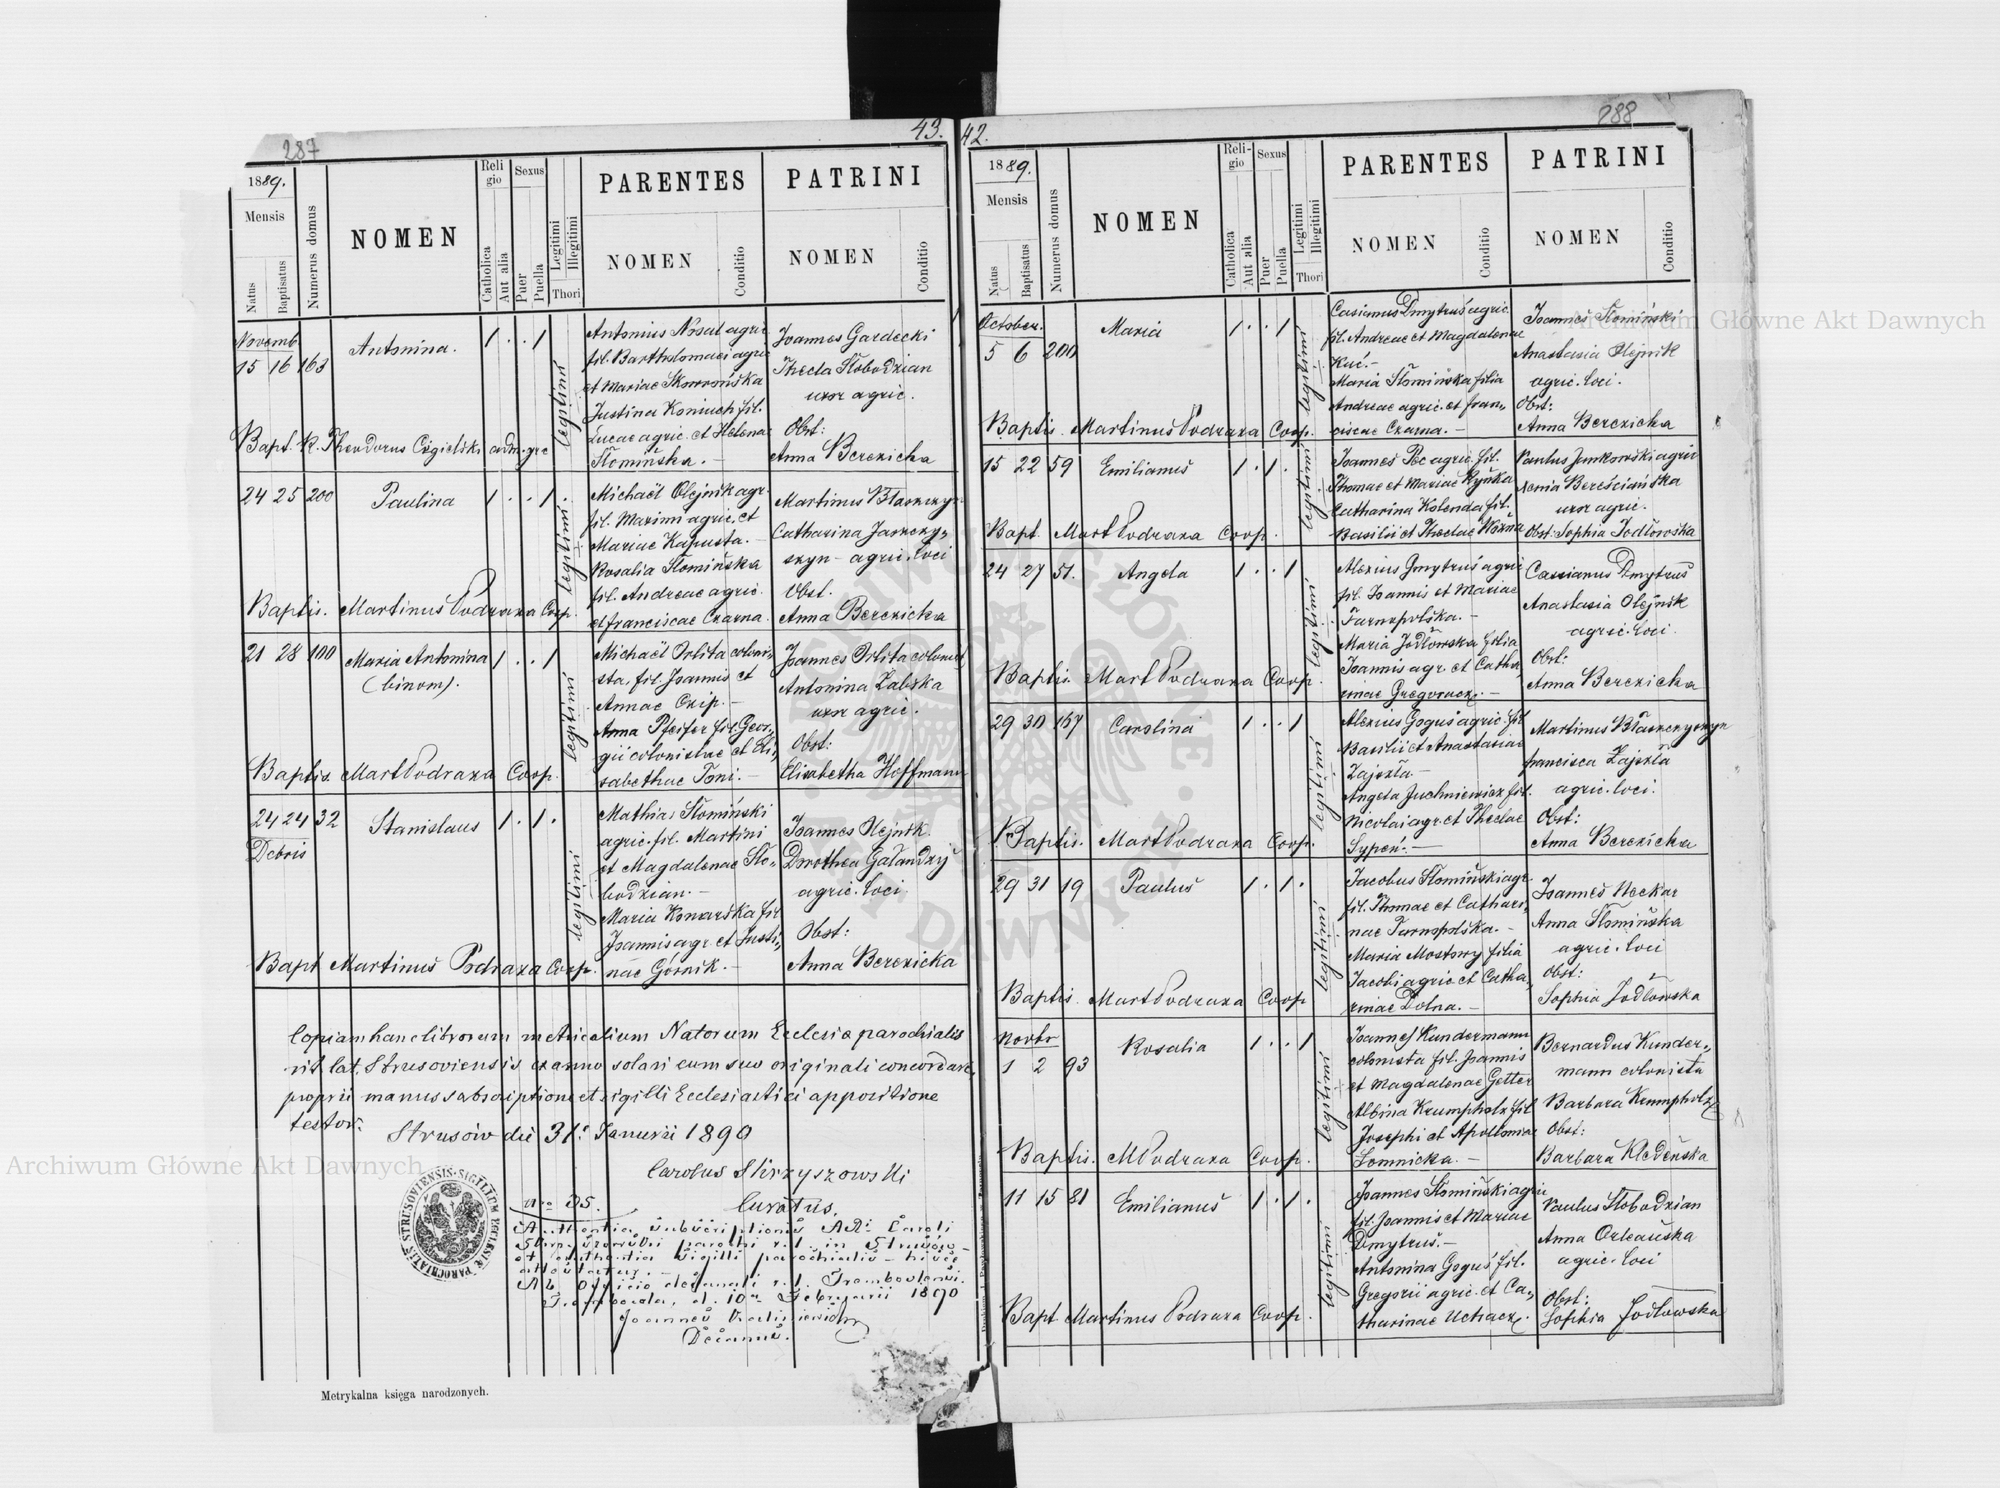 287
43.
1889.
Mensis
Natus
Baptisatus
Numerus domus
NOMEN
Religio
Catholica
Aut alia
Sexus
Puer
Puella
Legitimi
Illegitimi
Thori
PARENTES
NOMEN
Conditio
PATRINI
NOMEN
Conditio
Novemb
15 16 163
Antonina.
1 . . 1
legitimi
Antonius Nosal agric
fil. Bartholomaei agric
et Mariae Skorońska
Justina Koniuch fil.
Lucae agric. et Helenae
Słomińska. –
Joannes Gardecki
Thecla Słobodzian
uxor agric.
Obst:
Anna Berezicka
Bapt. R. Theodorus Cegielski adm. gr c
24 25 200
Paulina
1 . . 1 .
legitimi
Michaël Olejnik agr.
fil. Maximi agric. et
Mariae Kapusta. –
Rosalia Słomińska
fil. Andreae agric.
et franciscae Czarna.
Martinus Błaszczyn
Catharina Jaszczy-
szyn – agric. loci
Obst.
Anna Berezicka
Baptis. Martinus Podraza Coop.
21 28 100
Maria Antonina
(binom).
1 . . 1
legitimi
Michaël Orlita coloni-
sta, fil. Joannis et
Annae Czip. –
Anna Pfeifer fil. Geor-
gii colonistae et Eli-
sabethae Toni. –
Joannes Orlita colonist
Antonina Zabska
uxor agric.
Obst:
Elisabetha Hoffmann
Baptis Mart Podraza Coop.
24 24 32
Debris
Stanislaus
1 . 1 .
legitimi
Mathias Słomiński
agric. fil. Martini
et Magdalenae Sło-
bodzian. –
Maria Konarska fil
Joannis agr. et Justi-
nae Górnik. –
Joannes Olejnik
Dorothea Gałandzij
agric. loci
Obst:
Anna Berezicka
Bapt Martinus Podraza Coop.
Copiam hanc librorum metricalium Natorum Ecclesia parochialis
rit. lat. Strusoviensis ex anno solari cum suo originali concordare,
proprii manus subscriptione et sigilli Ecclesiastici appositione
testor.
Strusów die 31. Januarii 1890
Carolus Skrzyszowski
Curatus.
SIGILLUM ECCLESIAE PAROCHIALIS STRUSOVIENSIS
Nro 35.
Authentia subscriptionis
parochi r. l. in Strusów
et authentia sigilli parochialis hisce
attestatur. –
Ab Officio decanali r. l. Trembovlensi.
Trembowla, d. 10a Februarii 1890
Joannes
Decanus.
Metrykalna księga narodzonych.
42.
288
1889.
Mensis
Natus
Baptisatus
Numerus domus
NOMEN
Religio
Catholica
Aut alia
Sexus
Puer
Puella
Legitimi
Illegitimi
Thori
PARENTES
NOMEN
Conditio
PATRINI
NOMEN
Conditio
October.
5 6 200
Maria
1 . . 1
legitimi
Casianus Dmytruś agric.
fil. Andreae et Magdalenae
Kuć. –
Maria Słomińska filia
Andreae agric. et fran-
ciscae Czarna. –
Joannes Słomiński
Anastasia Olejnik
agric. loci.
Obst:
Anna Berezicka
Baptis. Martinus Podraza Coop.
15 22 59
Emilianus
1 . 1 .
legitimi
Joannes Bec agric. fil.
Thomae et Mariae Rynka
Catharina Kolenda fil.
Basilii et Theclae Woźna
Paulus Junkowski agric
Xenia Bereściańska
uxor agric.
Obst: Sophia Jodłowska
Bapt. Mart Podraza Coop.
24 27 51.
Angela
1 . . 1
legitimi
Alexius Dmytruś agric
fil. Joannis et Mariae
Tarnopolska. –
Maria Jodłowska filia
Joannis agr. et Catha-
rinae Gregoracz. –
Cassianus Dmytruś
Anastasia Olejnik
agric. loci.
Obst:
Anna Berezicka
Baptis. Mart Podraza Coop.
29 30 157
Carolina
1 . . 1
legitimi
Alexius Goguś agric. fil
Basilii et Anastasiae
Zajszła –
Angela Juchniewicz fil.
Nicolai agr. et Theclae
Sypeń. –
Martinus Błaszczyszyn
francisca Zajszła
agric. loci.
Obst:
Anna Berezicka
Baptis. Mart Podraza Coop.
29 31 19
Paulus
1 . 1 .
legitimi
Jacobus Słomiński agr.
fil. Thomae et Cathari-
nae Tarnopolska. –
Maria Mostowy filia
Jacobi agric et Catha-
rinae Dolna. –
Joannes Neckar
Anna Słomińska
agric. loci
Obst:
Sophia Jodłowska
Baptis. Mart Podraza Coop
Novbr
1 2 93
Rosalia
1 . . 1
legitimi
Joannes Kundermann
colonista fil. Joannis
et Magdalenae Getter
Albina Krumpholz fil
Josephi et Apolloniae
Łomnicka. –
Bernardus Kunder-
mann colonista
Barbara Krumpholz
Obst:
Barbara Kledeńska
Baptis. M Podraza Coop.
11 15 81
Emilianus
1 . 1 .
legitimi
Joannes Słomiński agric
fil. Joannis et Mariae
Dmytruś. –
Antonina Goguś fil.
Gregorii agric. et Ca-
tharinae Uchacz.
Paulus Słobodzian
Anna Orleańska
agric. loci
Obst:
Sophia Jodłowska
Bapt Martinus Podraza Coop.
Archiwum Główne Akt Dawnych
Archiwum Główne Akt Dawnych
ARCHIWUM GŁÓWNE AKT DAWNYCH